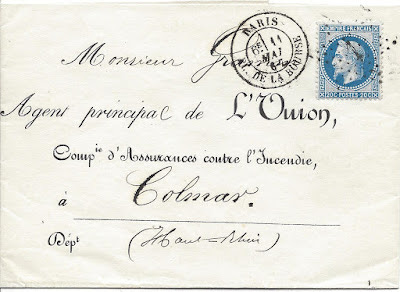 PARIS
11
MAI
DE LA BOURSE
EMPIRE FRANÇAIS
20C POSTES 20C
Monsieur
Agent principal de L'Union,
Comp.ie d'Assurances contre l'Incendie,
à Colmar.
Dép.t (Haut-Rhin)